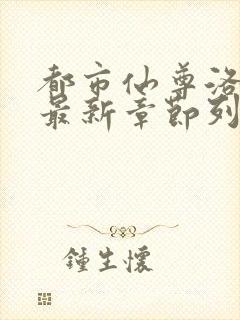 都市仙尊洛
最新章節列
鍾生懷